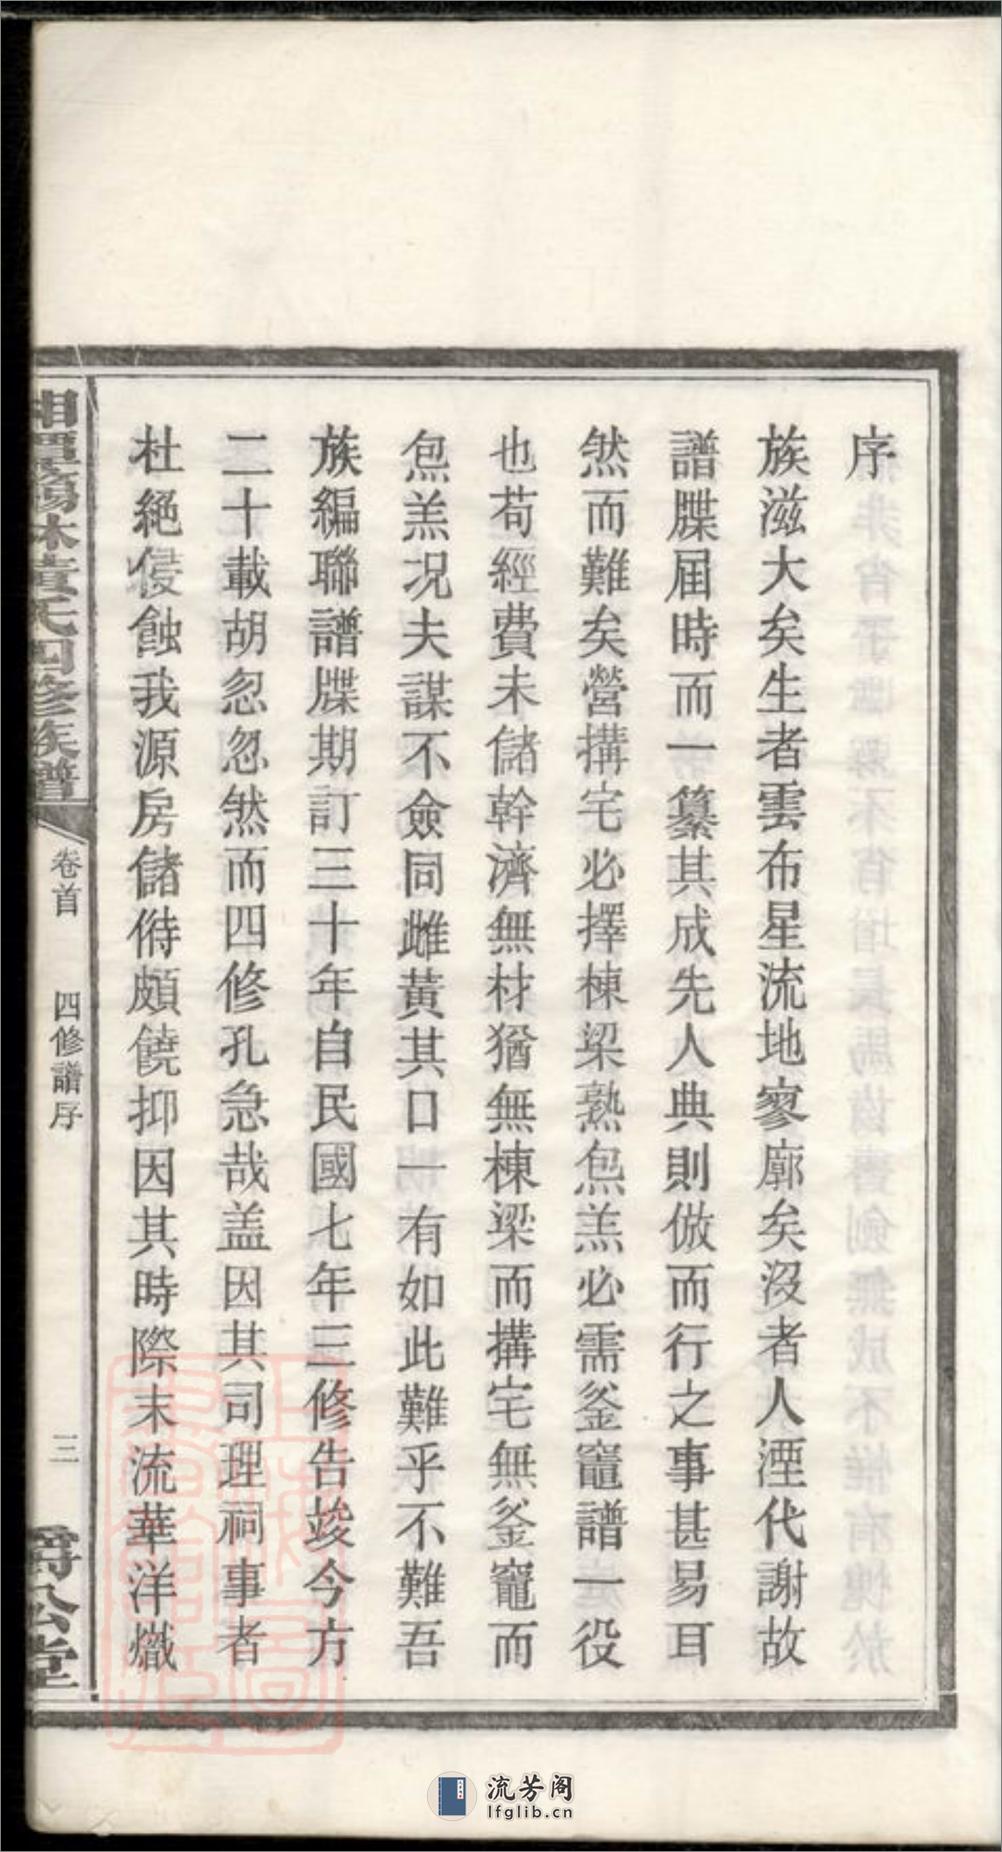 序
族滋大矣生者雲布星流地寥廓矣沒者人湮代謝故
譜牒屆時而一纂其成先人典則倣而行之事甚易耳
然而難矣營搆宅必擇棟梁熟炰羔必需釜竈譜一役
也苟經費未儲幹濟無材猶無棟梁而搆宅無釜竈而
炰羔况夫謀不僉同雌黃其口一有如此難乎不難吾
族編聯譜牒期訂三十年自民國七年三修告竣今方
二十載胡忽忽然而四修孔急哉盖因其司理祠事者
杜絕侵蝕我源房儲偫頗饒抑因其時際末流華洋熾
湘潭錫林黃氏四修族譜
卷首
四修譜序
三
爵公堂
流芳阁
lfglib.cn